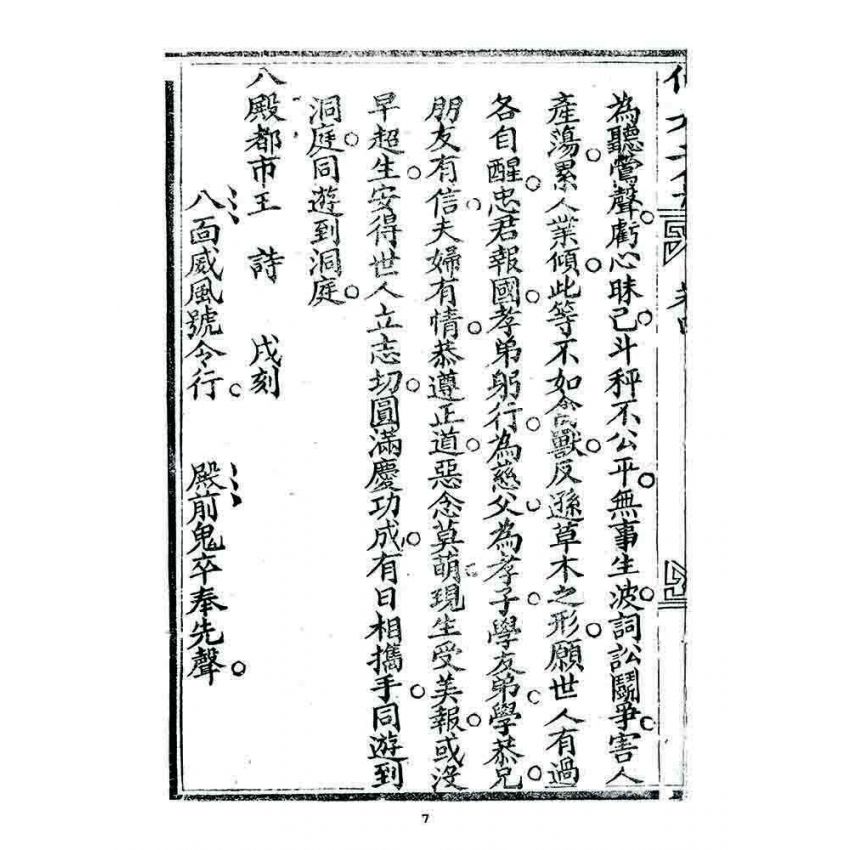 為聽鶯聲。虧心昧己。斗秤不公平。無事生波。詞訟鬪爭。害人
產蕩。累人業傾。此等不如禽獸。反遜草木之形。願世人有過
各自醒。忠君報國。孝弟躬行。為慈父。為孝子。學友弟。學恭兄。
朋友有信。夫婦有情。恭遵正道。惡念莫萌。現生受美報。或沒
早超生。安得世人立志切。圓滿慶功成。有日相攜手。同遊到
洞庭。同遊到洞庭。
八殿都市王 詩 戌刻
八面威風號令行。 殿前鬼卒奉先聲。
7